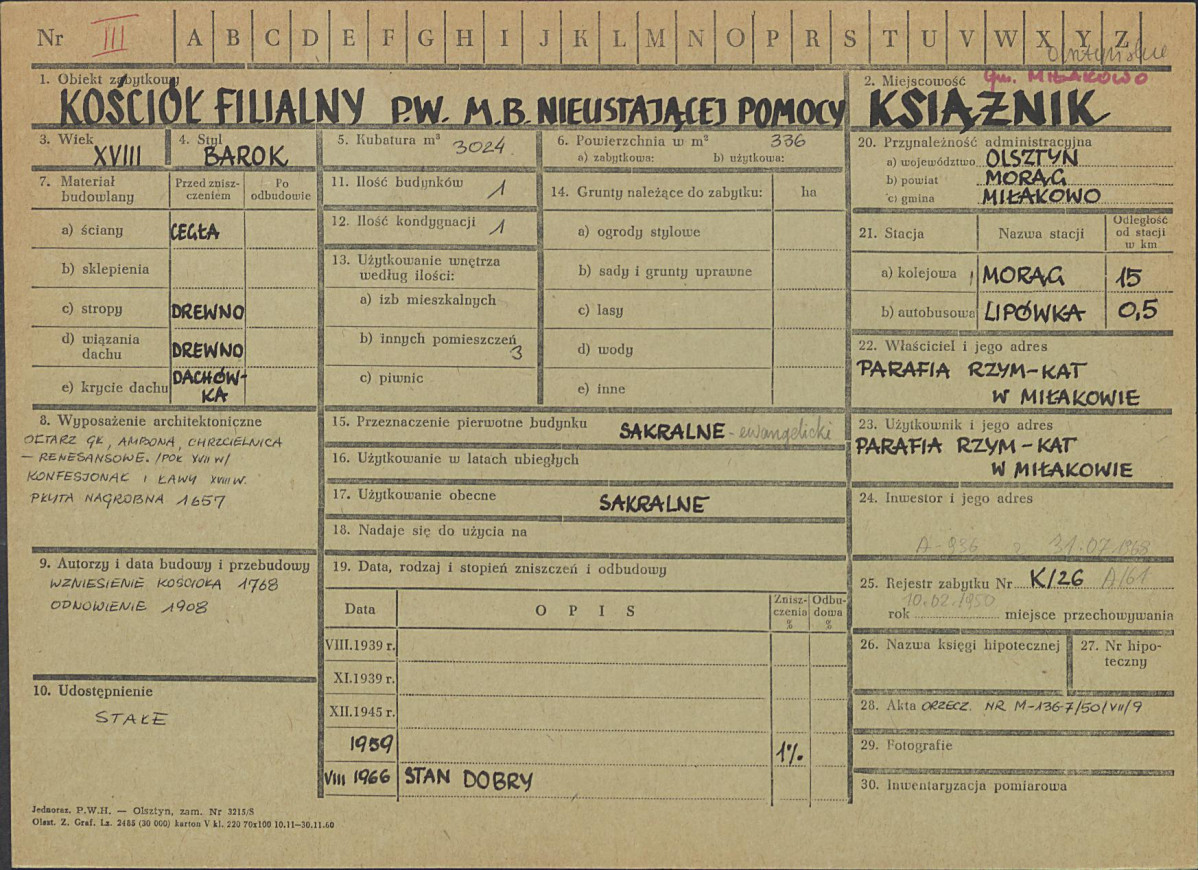 Nr III A B C D E F G H I J K L M N O P R S T U V W X Y Z
1. Obiekt zabytkowy
KOŚCIÓŁ FILIALNY P.W. M.B. NIEUSTAJĄCEJ POMOCY
2. Miejscowość gm. MIŁAKOWO
KSIĄŻNIK
3. Wiek
XVIII
4. Styl
BAROK
5. Kubatura m³ 3024
6. Powierzchnia w m² 336
a) zabytkowa: b) użytkowa:
20. Przynależność administracyjna
a) województwo OLSZTYN
b) powiat MORĄG
c) gmina MIŁAKOWO
7. Materiał budowlany
Przed znisz-
czeniem
Po
odbudowie
a) ściany CEGŁA
b) sklepienia
c) stropy DREWNO
d) wiązania
dachu DREWNO
e) krycie dachu DACHÓW-
KA
11. Ilość budynków 1
12. Ilość kondygnacji 1
13. Użytkowanie wnętrza
według ilości:
a) izb mieszkalnych
b) innych pomieszczeń
3
c) piwnic
14. Grunty należące do zabytku: ha
a) ogrody stylowe
b) sady i grunty uprawne
c) lasy
d) wody
e) inne
21. Stacja Nazwa stacji
Odległość
od stacji
w km
a) kolejowa MORĄG 15
b) autobusowa LIPÓWKA 0,5
22. Właściciel i jego adres
PARAFIA RZYM-KAT
W MIŁAKOWIE
8. Wyposażenie architektoniczne
OŁTARZ GŁ, AMBONA, CHRZCIELNICA
– RENESANSOWE. /POŁ XVII W/
KONFESJONAŁ I ŁAWY XVIII W.
PŁYTA NAGROBNA 1657
15. Przeznaczenie pierwotne budynku SAKRALNE - ewangelicki
16. Użytkowanie w latach ubiegłych
17. Użytkowanie obecne SAKRALNE
18. Nadaje się do użycia na
23. Użytkownik i jego adres
PARAFIA RZYM-KAT
W MIŁAKOWIE
24. Inwestor i jego adres
A-936 z 31.07.1968
9. Autorzy i data budowy i przebudowy
WZNIESIENIE KOŚCIOŁA 1768
ODNOWIENIE 1908
10. Udostępnienie
STAŁE
19. Data, rodzaj i stopień zniszczeń i odbudowy
Data OPIS
Znisz-
czenia
%
Odbu-
dowa
%
VIII.1939 r.
XI.1939 r.
XII.1945 r.
1959 1%
VIII 1966 STAN DOBRY
25. Rejestr zabytku Nr K/26 A/61
10.02.1950
rok miejsce przechowywania
26. Nazwa księgi hipotecznej
27. Nr hipo-
teczny
28. Akta ORZECZ. NR M-136-7/50/VII/9
29. Fotografie
30. Inwentaryzacja pomiarowa
Jednoraz. P.W.H. — Olsztyn, zam. Nr 3215/S
Olszt. Z. Graf. Lz. 2485 (30 000) karton V kl. 220 70x100 10.11—30.11.60